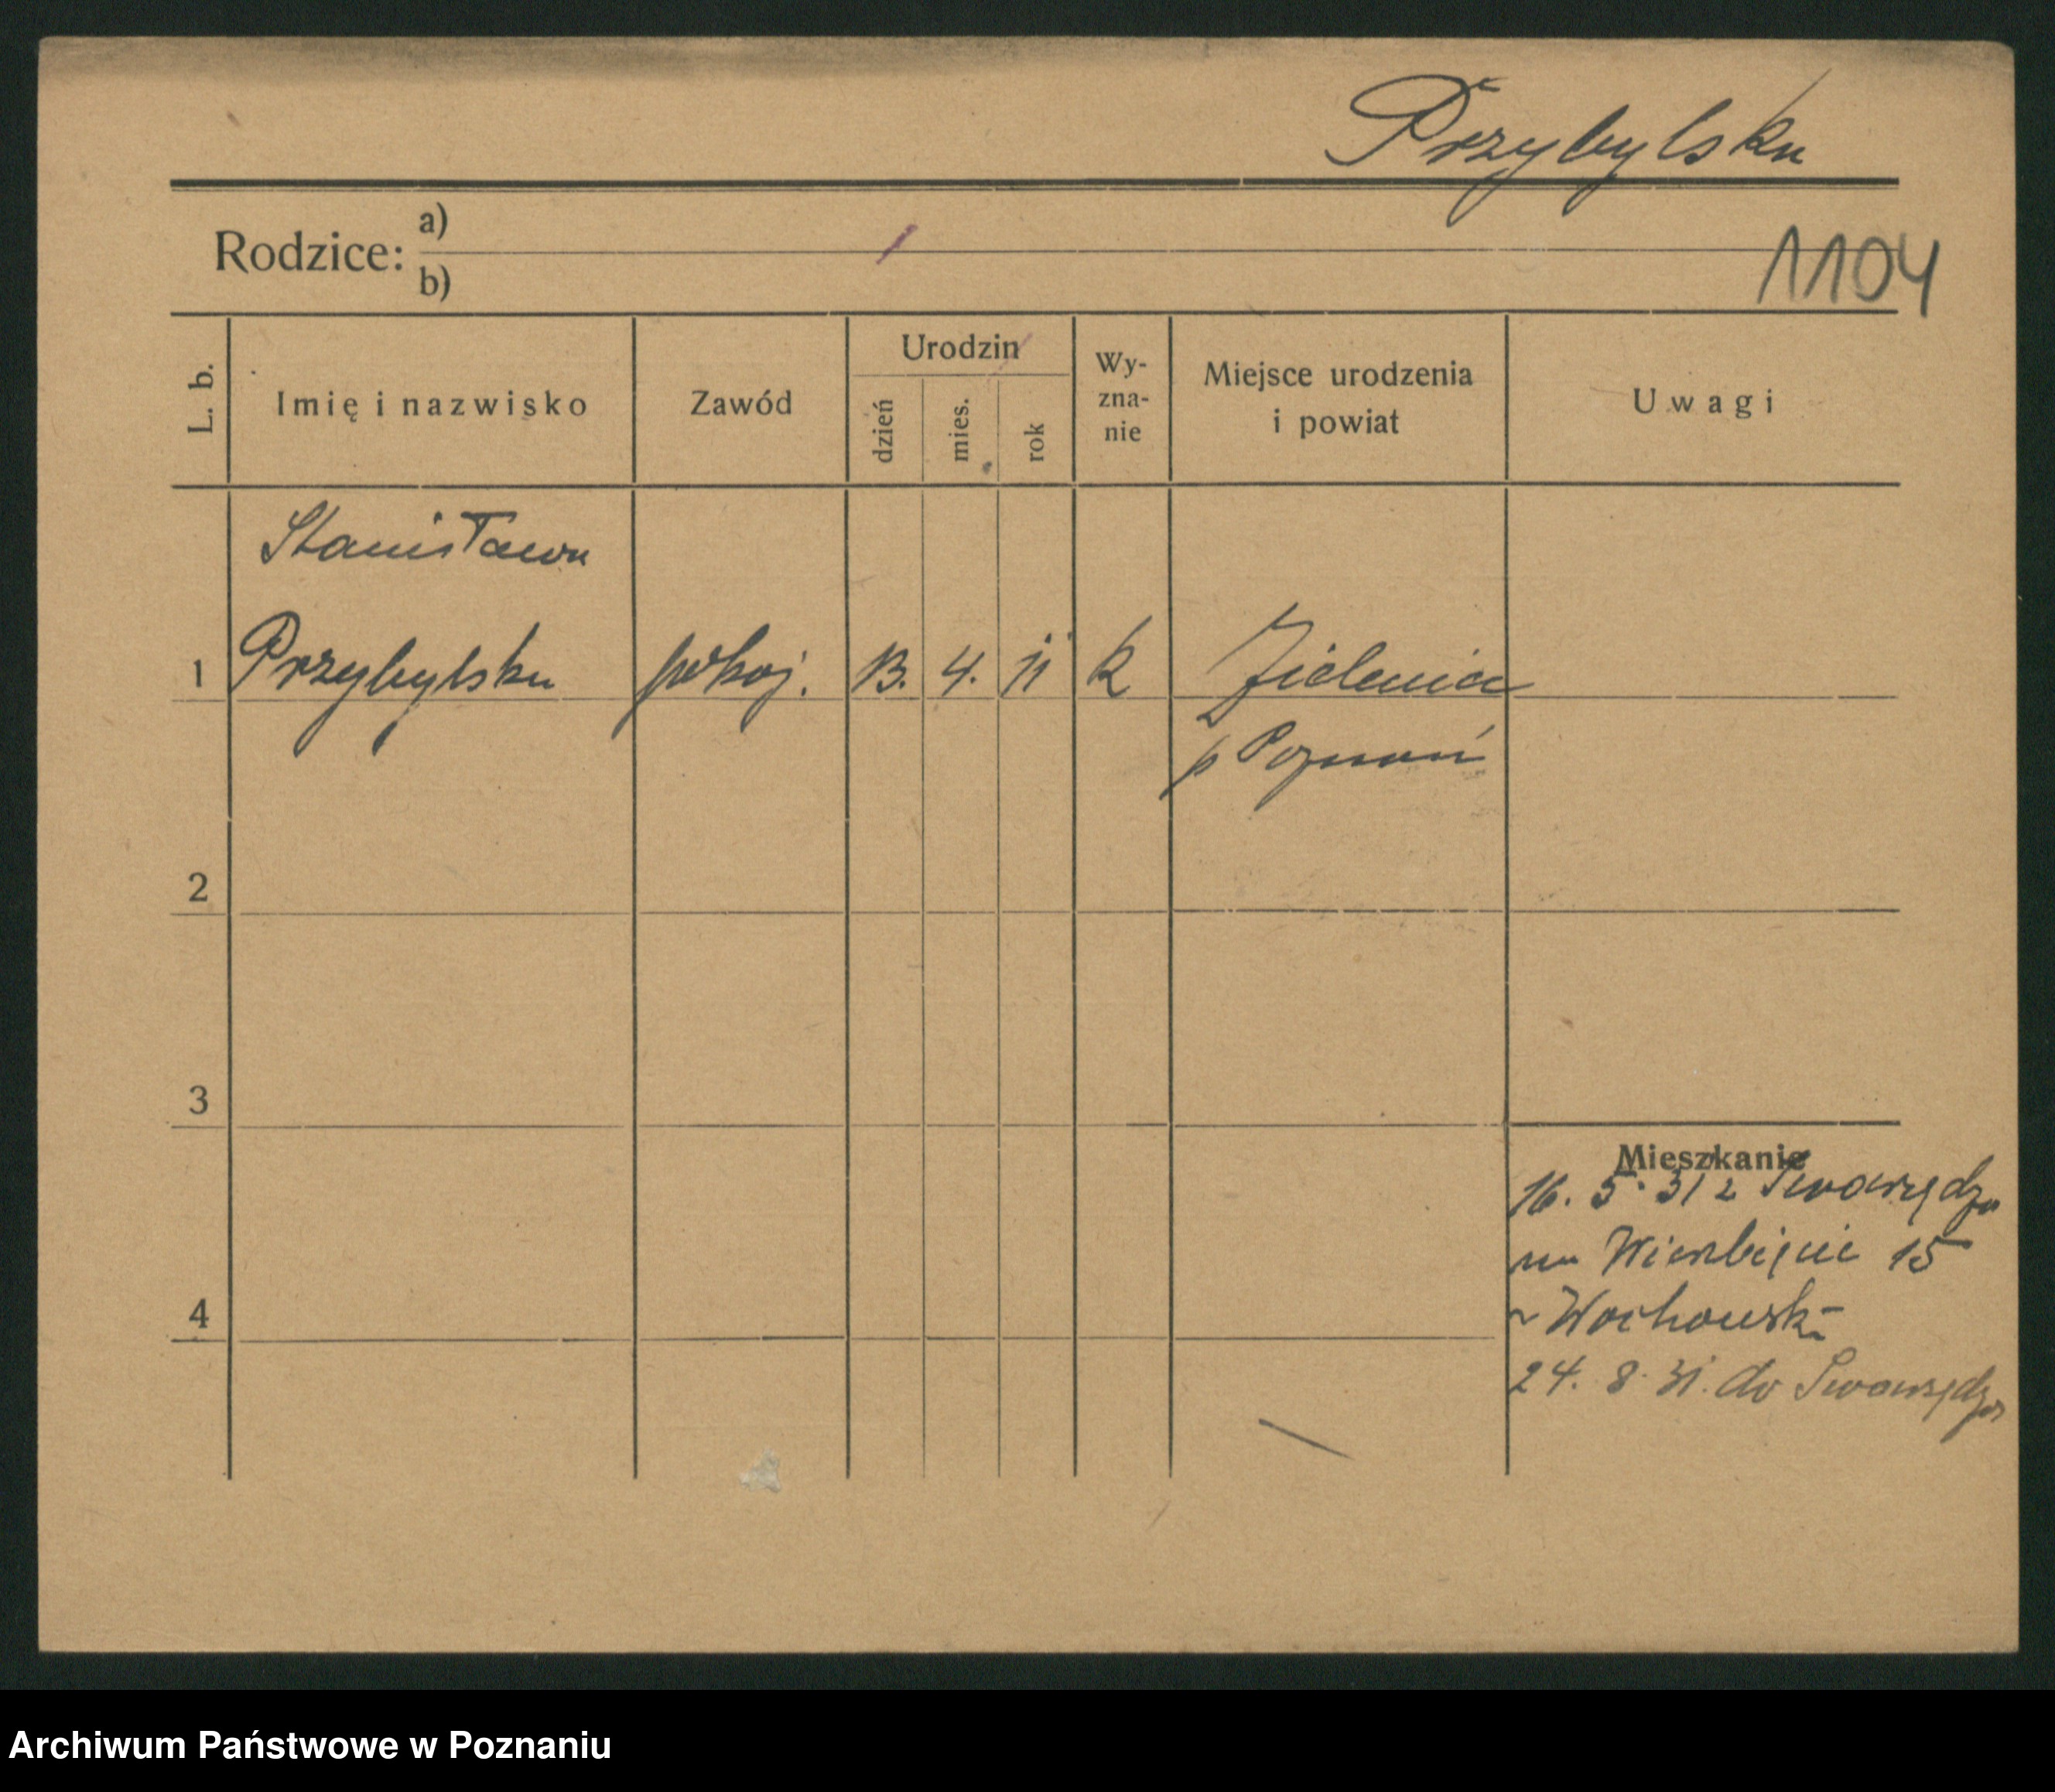 Przybylska
Rodzice: a)
b)
1104
L. b.
Imię i nazwisko
Zawód
Urodzin
dzień
mies.
rok
Wy-
zna-
nie
Miejsce urodzenia
i powiat
Uwagi
Stanisława
1 Przybylska pokoj. 13. 4. 11 k Zieleniec
p Poznań
2
3
4
Mieszkanie
16. 5. 31 z Swarzędza
na Wierzbięcice 15
24. 8. 31. do Swarzędza
Archiwum Państwowe w Poznaniu